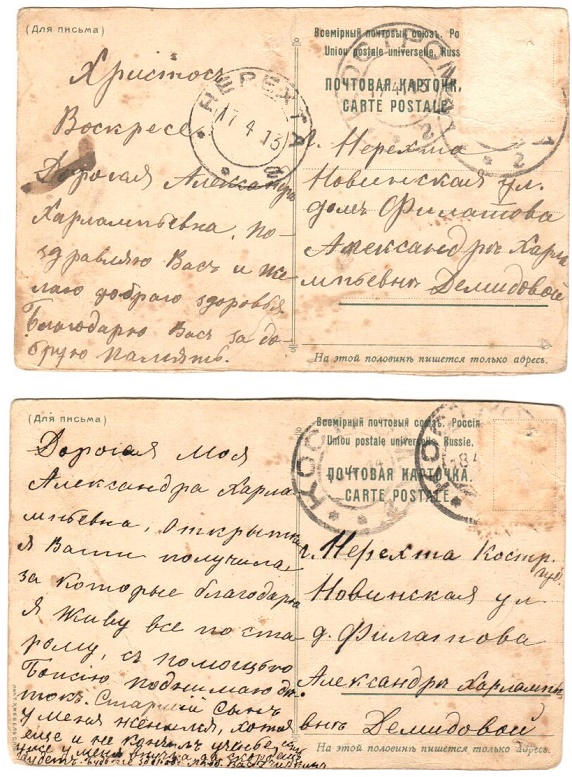 (Для письма)
Христосъ
Воскресе
Дорогая Александра
Харлампьевна, по-
здравляю Васъ и же-
лаю добраго здоровья
Благодарю Васъ за до-
брую память.
Всемірный почтовый союзъ. Ро
Union postale universelle. Russ
ПОЧТОВАЯ КАРТОЧК
CARTE POSTALE
КОСТРОМА
НЕРЕХТА
17 4 13
г. Нерехта
Новинская ул.
домъ Филатова
Александръ Харла
мпьевнъ Демидовой
На этой половинѣ пишется только адресъ.
(Для письма)
Дорогая моя
Александра Харла
мпьевна, открытки
я Ваши получила
за которые благодарю
Я живу все по ста
рому, съ помощью
Божію поднимаю дѣ
токъ. Старшій сынъ
у меня женился, хотя
еще и не кончилъ ученье,
уже у меня внучка
Всемірный почтовый союзъ. Россія
Union postale universelle. Russie.
ПОЧТОВАЯ КАРТОЧКА.
CARTE POSTALE
КОС
г. Нерехта Костр.
губ
Новинская ул
д. Филатова
Александръ Харлампь
внъ Демидовой
На этой половинѣ пишется только адресъ.